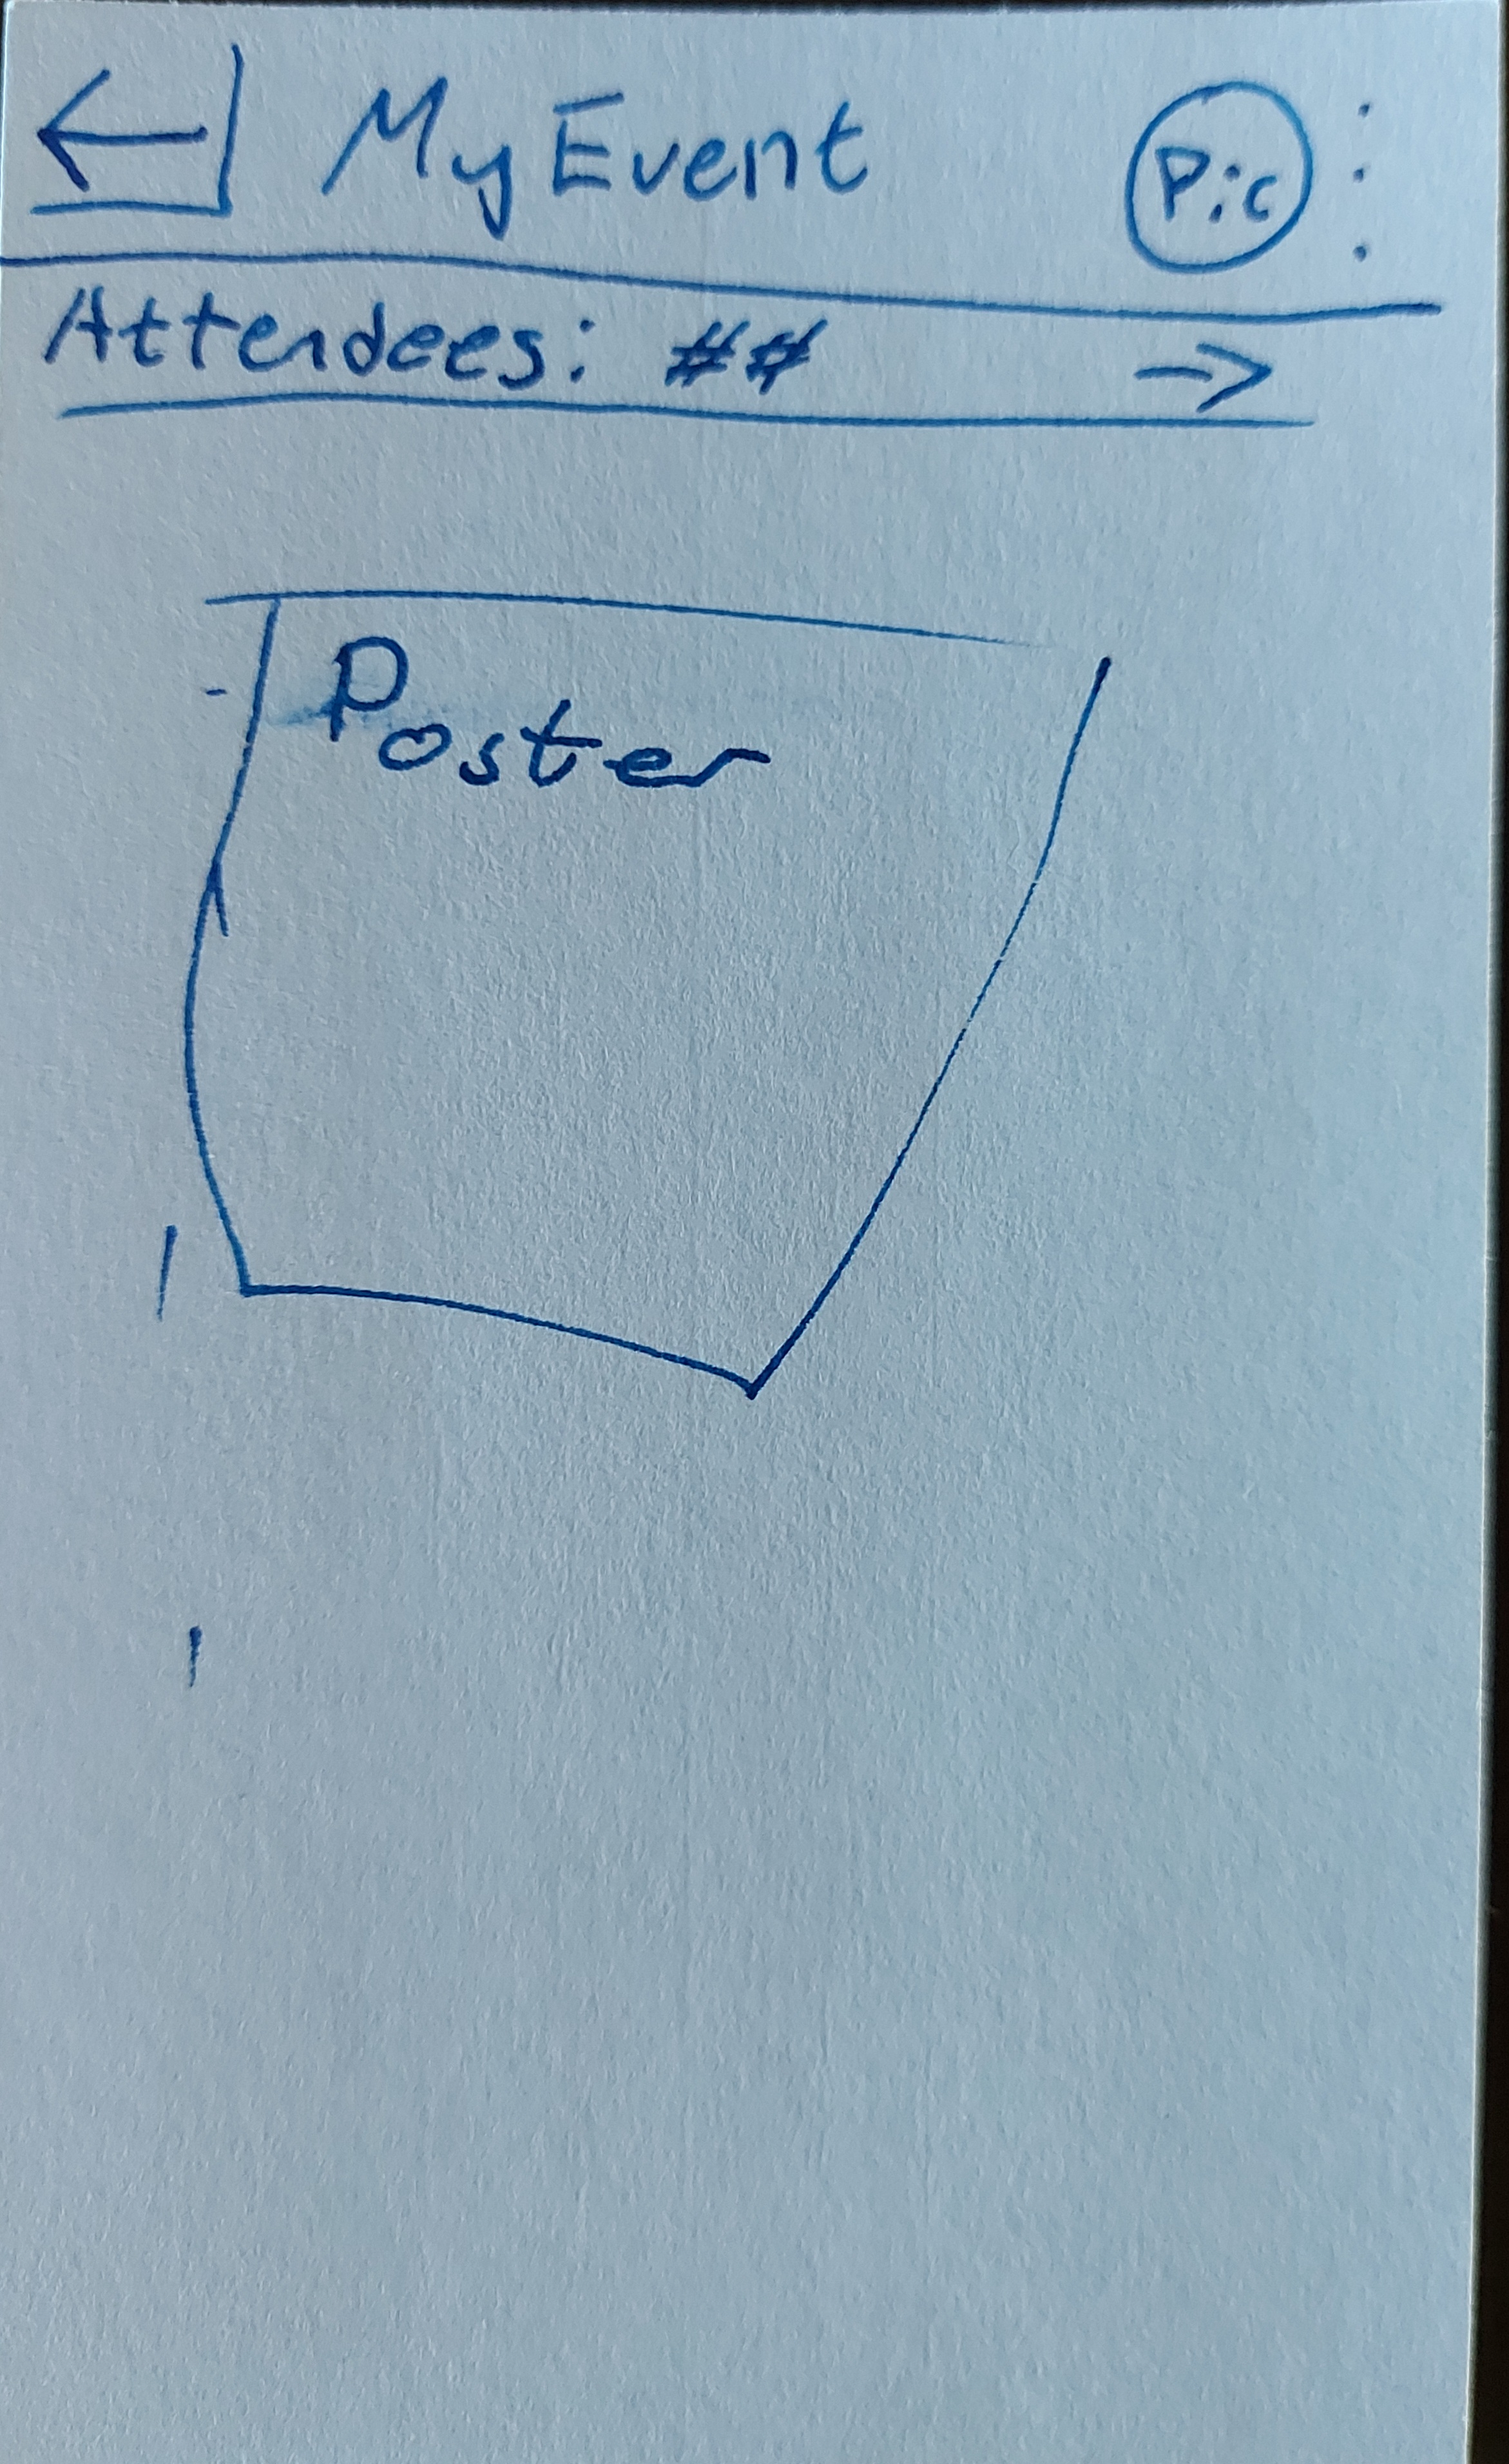 My Event Pic
Attendees: ##
Poster